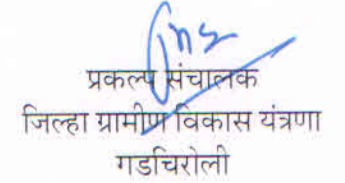 प्रकल्प संचालक
जिल्हा ग्रामीण विकास यंत्रणा
गडचिरोली